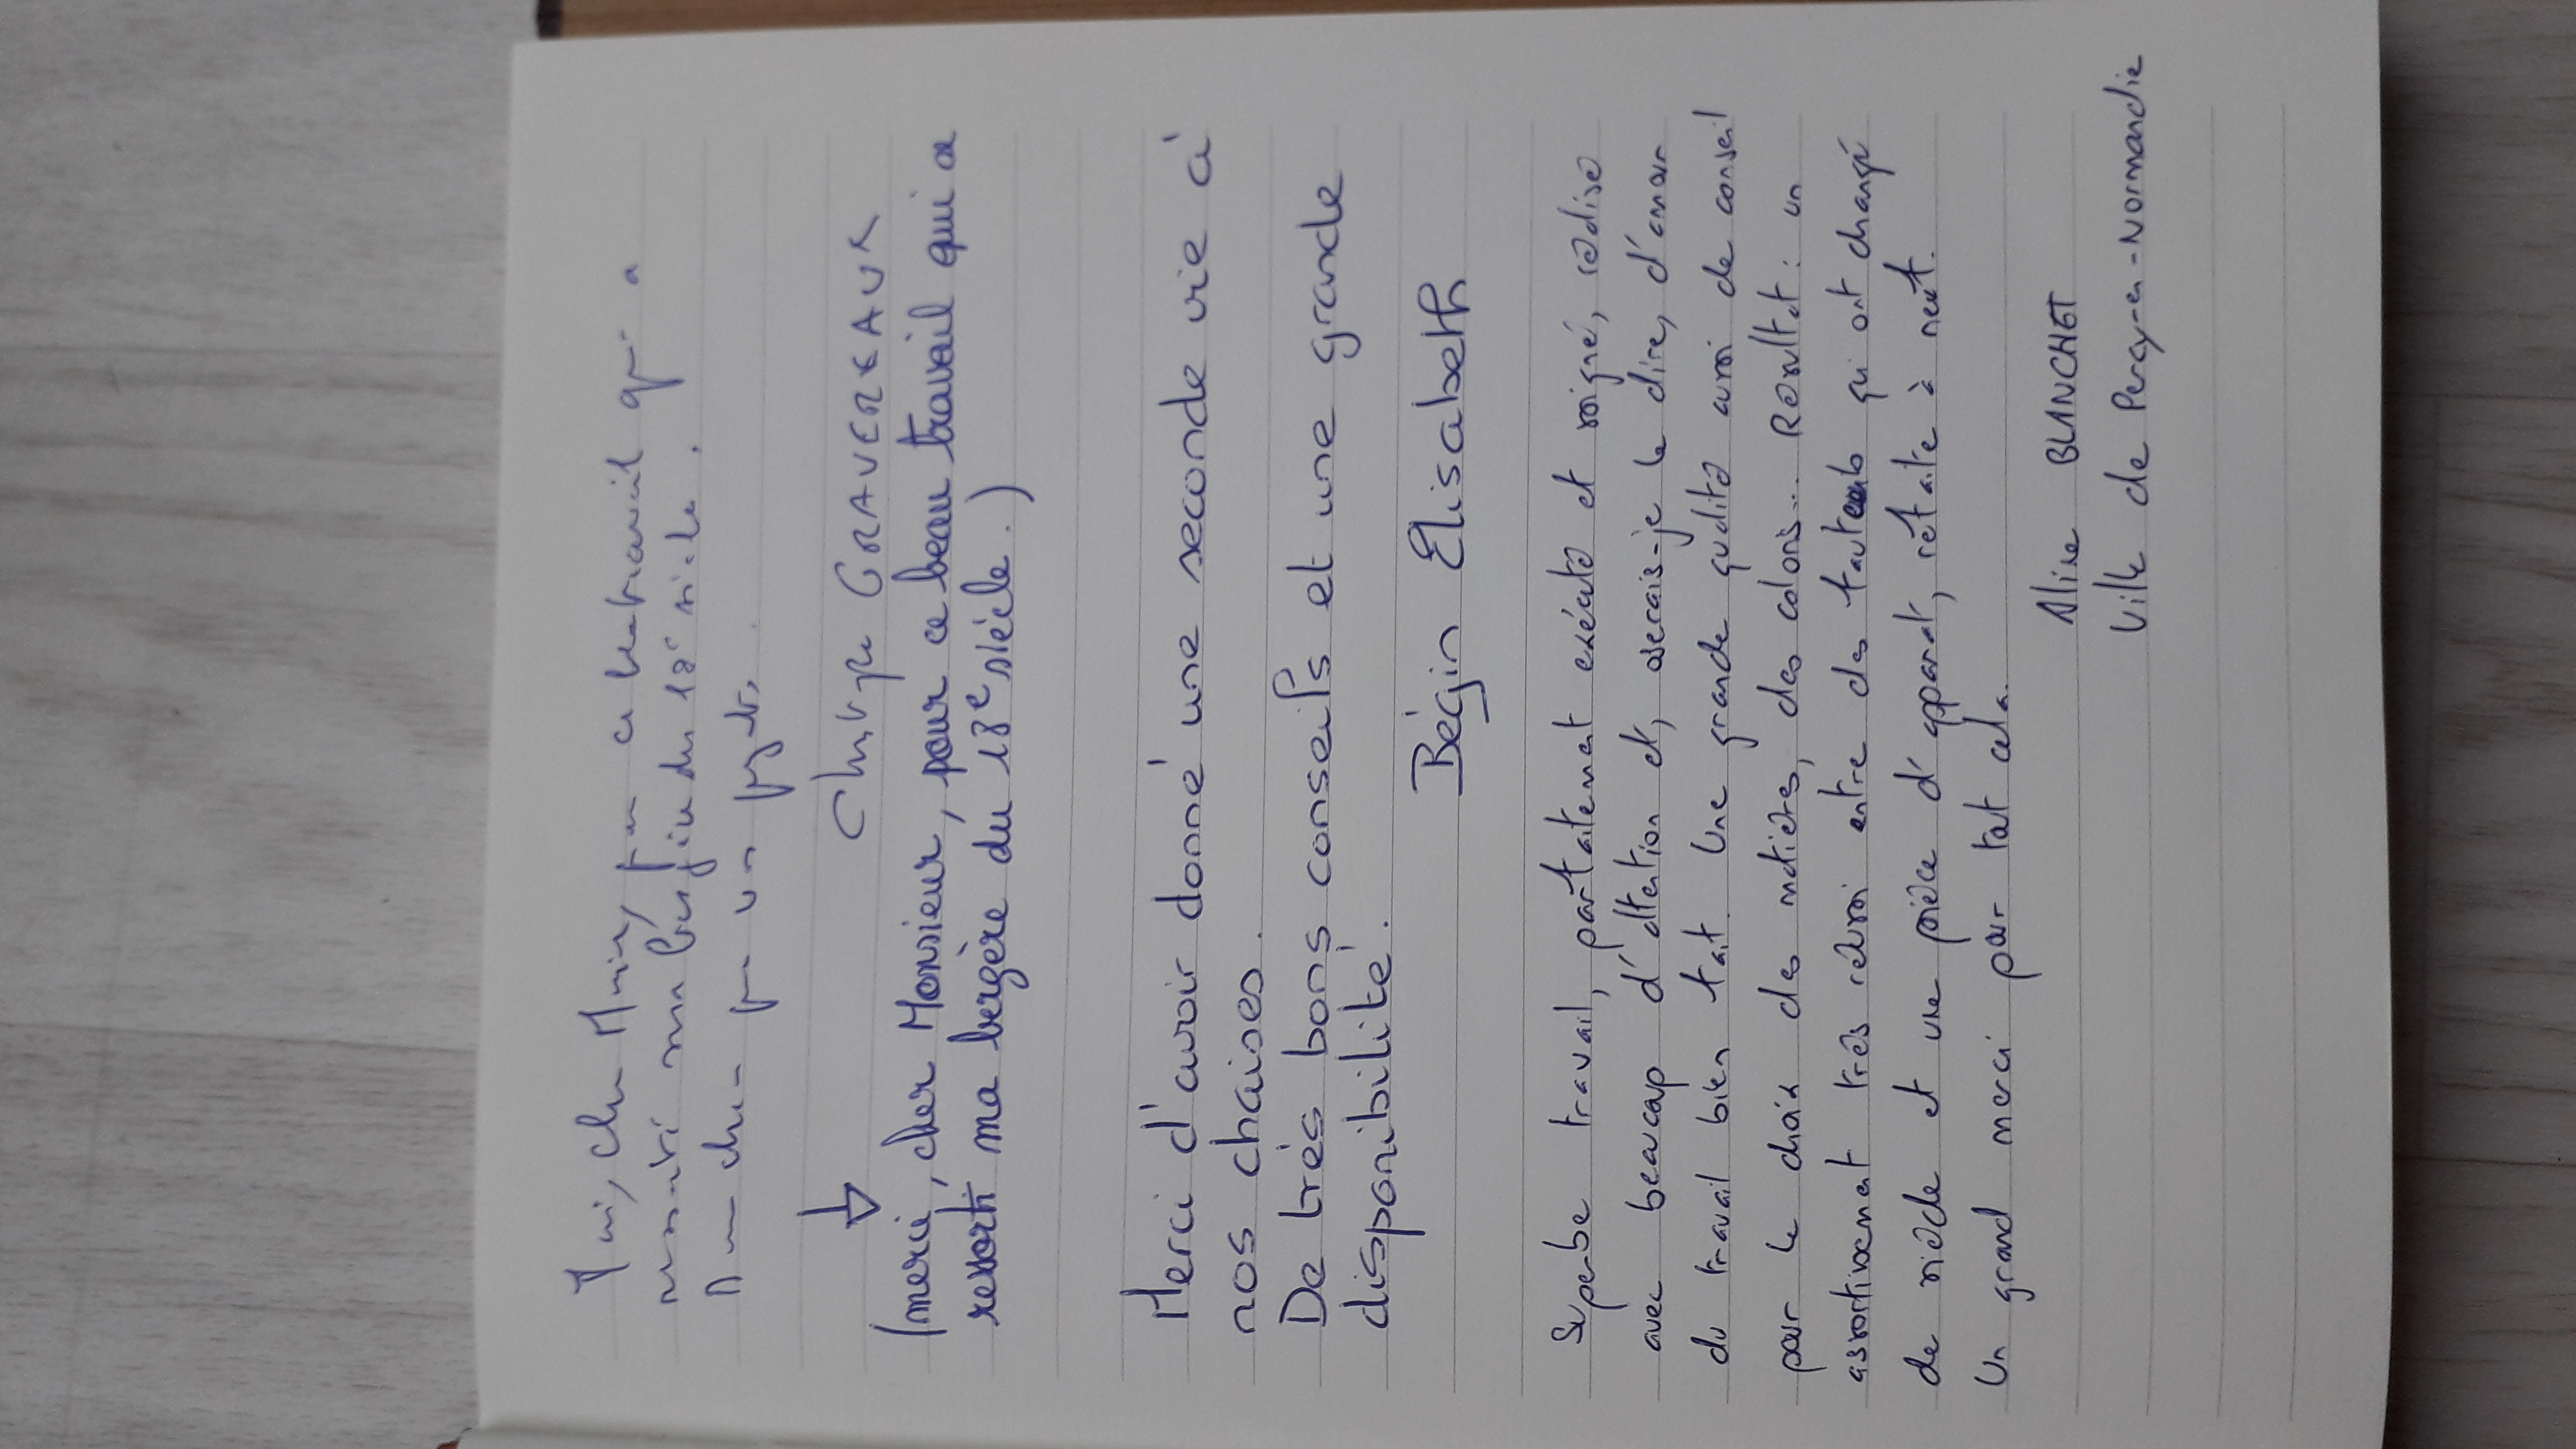 Merci, cher Monsieur, pour ce beau travail qui a
ma bergère du 18e siècle.
Bonne chance pour vos projets.
Christophe GRAVEREAUX
(merci, cher Monsieur, pour ce beau travail qui a
ressorti ma bergère du 18e siècle.)
Merci d'avoir donné une seconde vie à
nos chaises.
De très bons conseils et une grande
disponibilité.
Bégin Elisabeth
Superbe travail, parfaitement exécuté et soigné, réalisé
avec beaucoup d'attention et, oserais-je le dire, d'amour
du travail bien fait. Une grande qualité aussi de conseil
pour le choix des matières, des coloris... Résultat : un
assortissement très réussi entre des fauteuils qui ont changé
de siècle et une pièce d'apparat, refaite à neuf.
Un grand merci pour tout cela.
Aline BLANCHET
Ville de Percy-en-Normandie